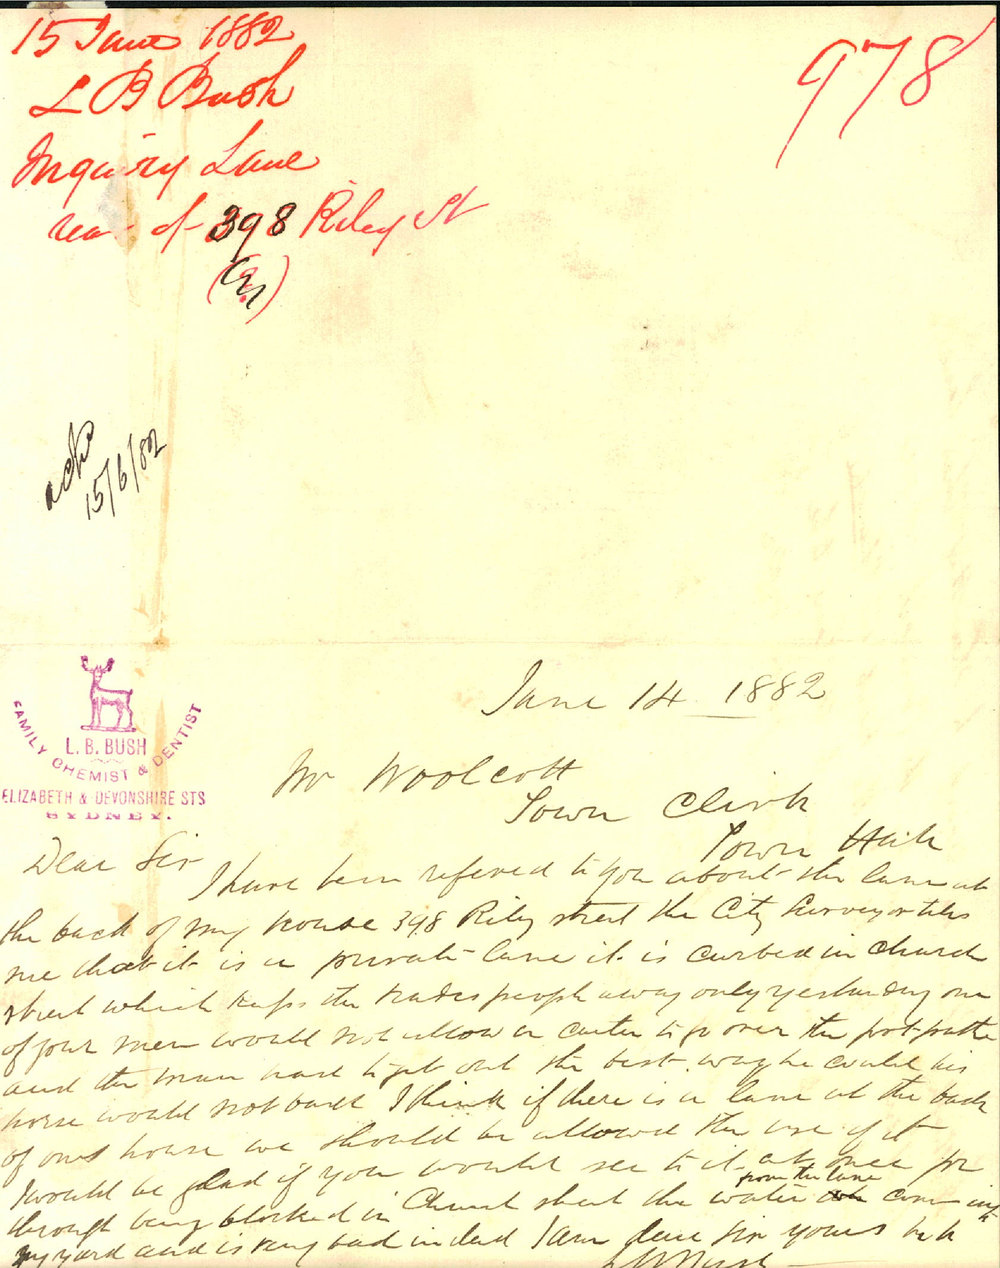 15 June 1882
978
L B Bush
Inquiry Lane
rear of 398 Riley St
(?)
ack
15/6/82
FAMILY CHEMIST & DENTIST
L. B. BUSH
ELIZABETH & DEVONSHIRE STS
SYDNEY.
June 14 1882
Mr Woolcott
Town Clerk
Town Hall
Dear Sir
I have been refered to you about the lane at
the back of my house 398 Riley street the City Surveyor tells
me that it is a private lane it is curbed in Church
street which keeps the trades people away only yesterday one
of your men would not allow a carter to go over the foot path
and the man had to get out the best way he could his
horse would not back I think if there is a lane at the back
of ones house we should be allowed the use of it
I would be glad if you would see to it at once for
from the lane
through being blocked in Church street the water come into
my yard and is very bad indeed I am dear sir yours
L B Bush